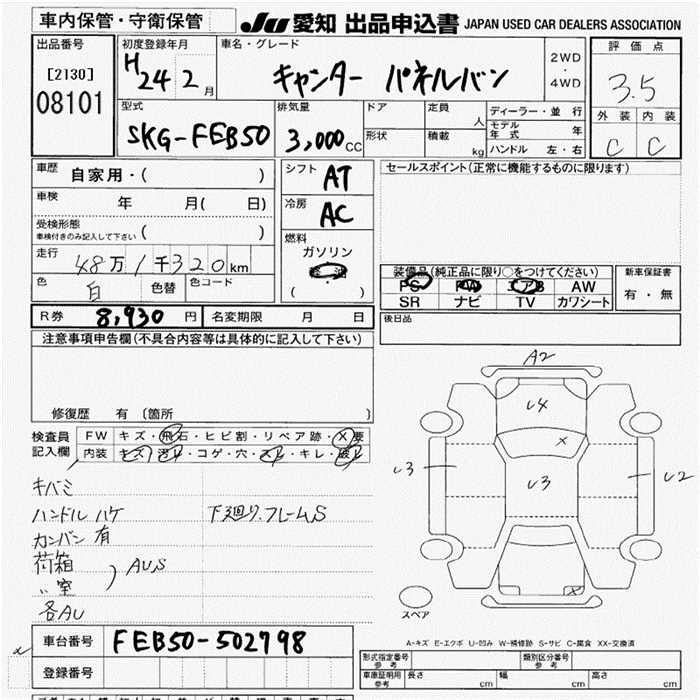 車内保管・守衛保管
JU 愛知 出品申込書 JAPAN USED CAR DEALERS ASSOCIATION
出品番号
[2130]
08101
初度登録年月
H24 2月
車名・グレード
キャンター パネルバン
2WD
・
4WD
評価点
3.5
外装 内装
C C
型式
SKG-FEB50
排気量
3,000CC
ドア
形状
定員
人
積載
kg
ディーラー・並行
モデル年式 年
ハンドル 左・右
車歴
自家用・( )
車検
年 月( 日)
受検形態
車検付きのみ記入して下さい ( )
走行
48万1千320km
色
白
色替
色コード
シフト
AT
冷房
AC
燃料
ガソリン
( )
セールスポイント(正常に機能するものに限ります)
装備品(純正品に限り○をつけてください)
PS PW エアB AW
SR ナビ TV カワシート
新車保証書
有・無
後日品
R券 8,930円 名変期限 月 日
注意事項申告欄(不具合内容等は具体的に記入して下さい)
修復歴 有 〔箇所 〕
検査員
記入欄
FW キズ・飛石・ヒビ割・リペア跡・X要
内装 キズ・汚レ・コゲ・穴・スレ・キレ・破レ
キバミ
ハンドルハゲ
カンバン有
荷箱
〃室
AUS
各AU
下廻り.フレームS
A2
U4
X
U3
U3
U2
X
スペア
A-キズ E-エクボ U-凹み W-補修跡 S-サビ C-腐食 XX-交換済
車台番号 FEB50-502798
登録番号
形式指定番号
参考
類別区分番号
参考
車庫証明用
参考
長さ cm 幅 cm 高さ cm